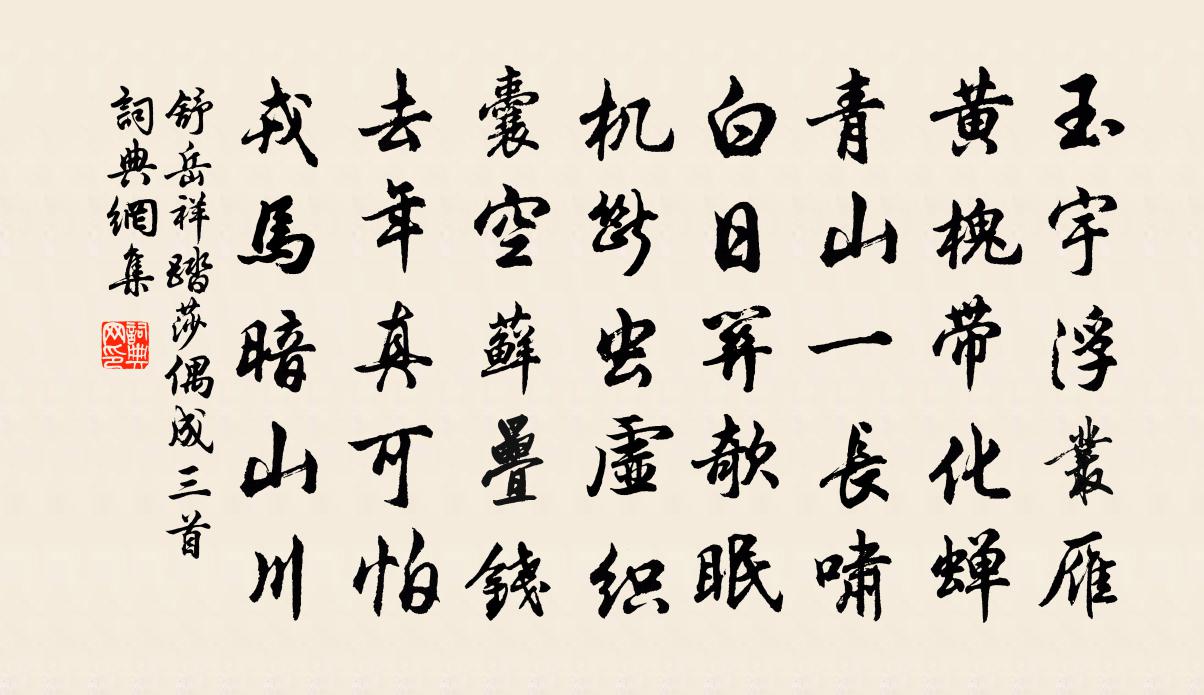 玉宇浮叢雁
黄槐帶化蝉
青山一長嘯
白日欹眠
机斷虫虛织
囊空蘚疊錢
去年真可怕
戎馬暗山川
舒岳祥踏莎偶成三首
詞典網集
詞典网印